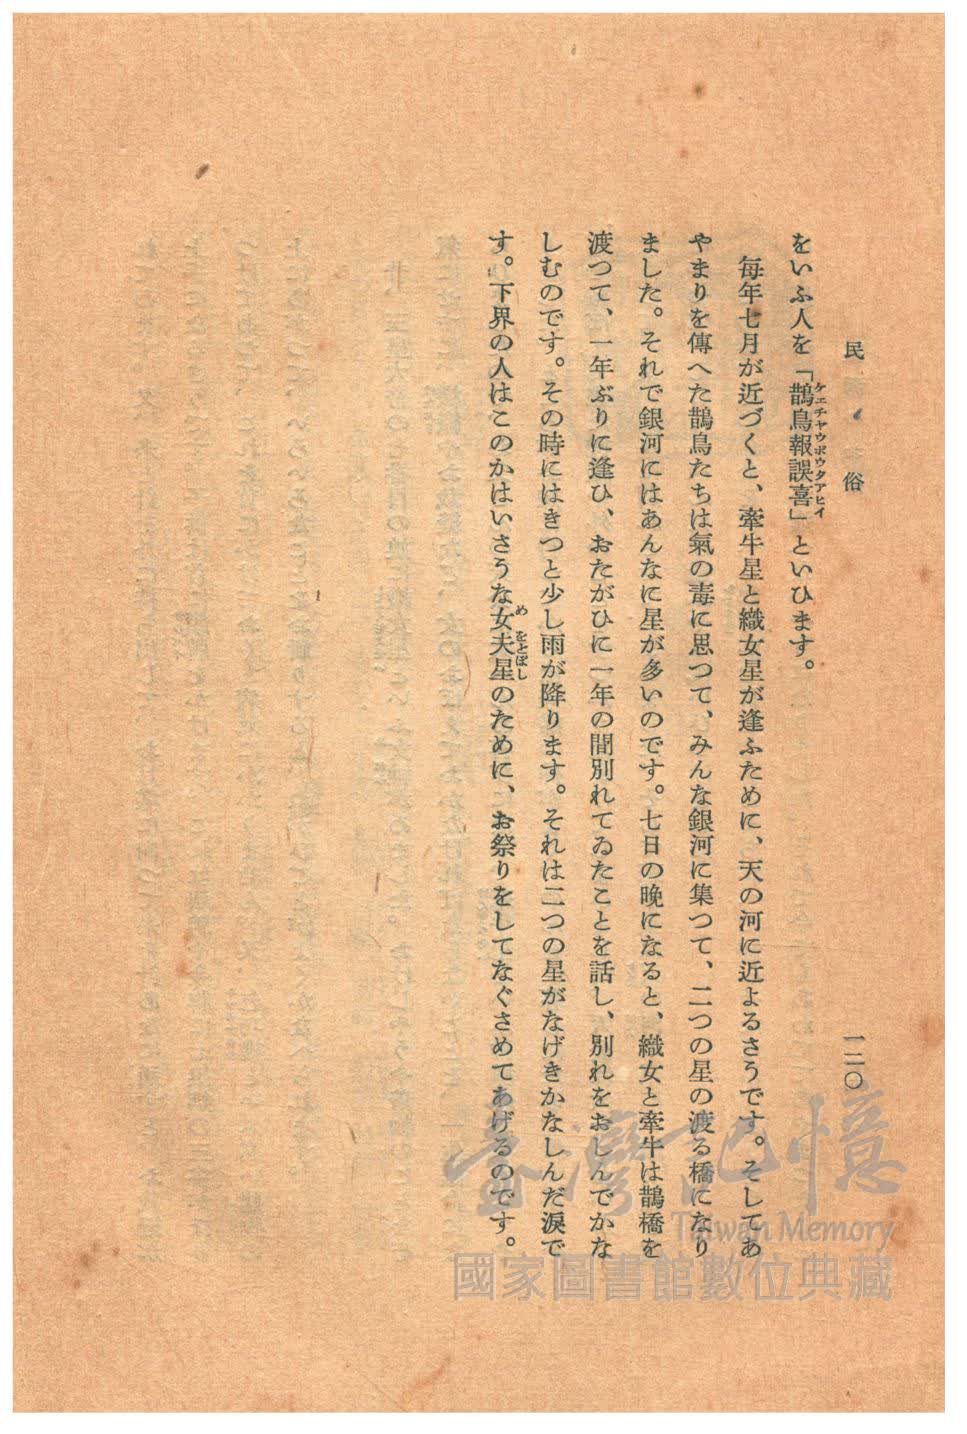 民俗
一二〇
をいふ人を「鵲鳥報誤喜」といひます。
ケエチヤウボウタアヒイ
毎年七月が近づくと、牽牛星と織女星が逢ふために、天の河に近よるさうです。そしてあ
やまりを傳へた鵲鳥たちは氣の毒に思つて、みんな銀河に集つて、二つの星の渡る橋になり
ました。それで銀河にはあんなに星が多いのです。七日の晩になると、織女と牽牛は鵲橋を
渡つて、一年ぶりに逢ひ、おたがひに一年の間別れてゐたことを話し、別れをおしんでかな
しむのです。その時にはきつと少し雨が降ります。それは二つの星がなげきかなしんだ涙で
す。下界の人はこのかはいさうな女夫星のために、お祭りをしてなぐさめてあげるのです。
めをとぼし
臺灣記憶
Taiwan Memory
國家圖書館數位典藏